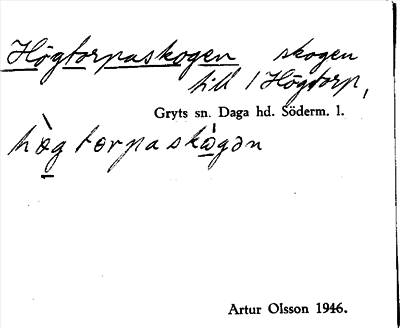 Högtorpaskogen skogen
till 1 Högtorp,
Gryts sn. Daga hd. Söderm. l.
hø̀g tørpaskɷ́gən
Artur Olsson 1946.